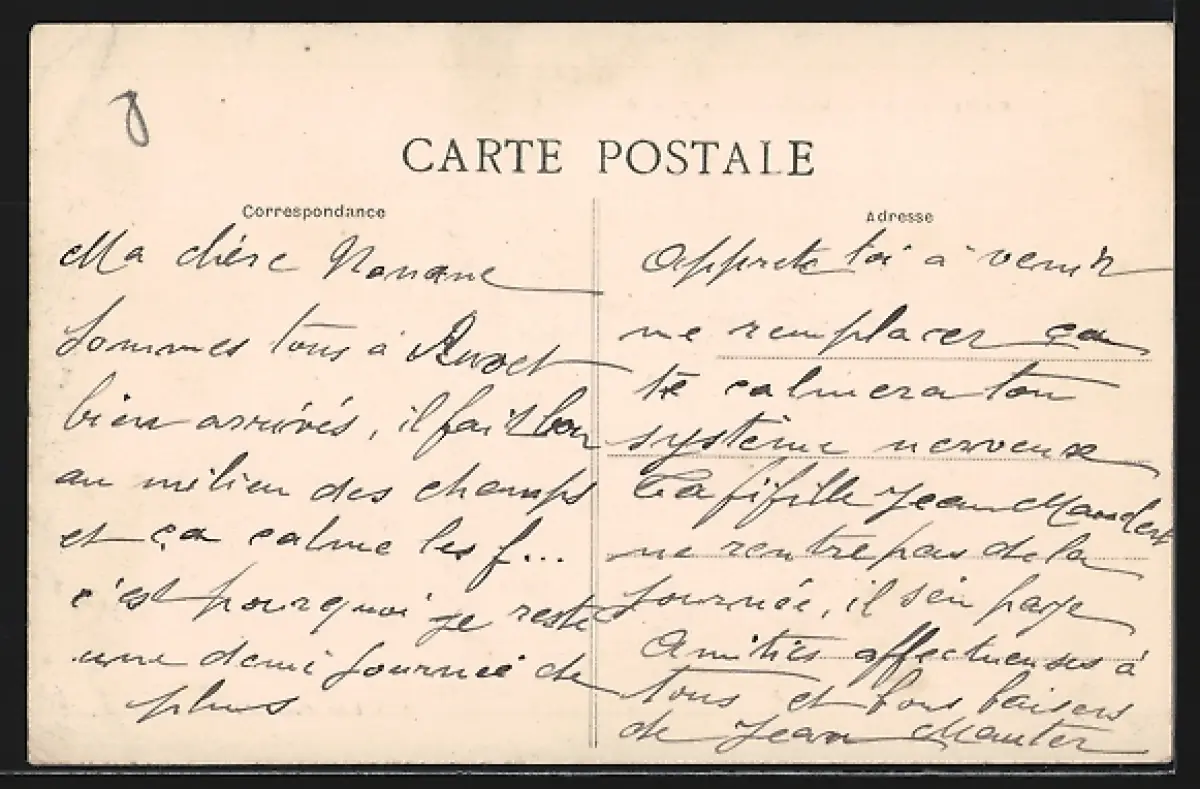 CARTE POSTALE
Correspondance
Ma chère Nanane
sommes tous à
bien arrivés, il fait bon
au milieu des champs
et ça calme les f...
c'est pourquoi je reste
une demi journée de
plus
Adresse
Apprete toi à venir
me remplacer ça
te calmera ton
système nerveux
La fifille Jean
ne rentre pas de la
journée, il s'en paye
Amitiés affectueuses à
tous et bons baisers
de Jean